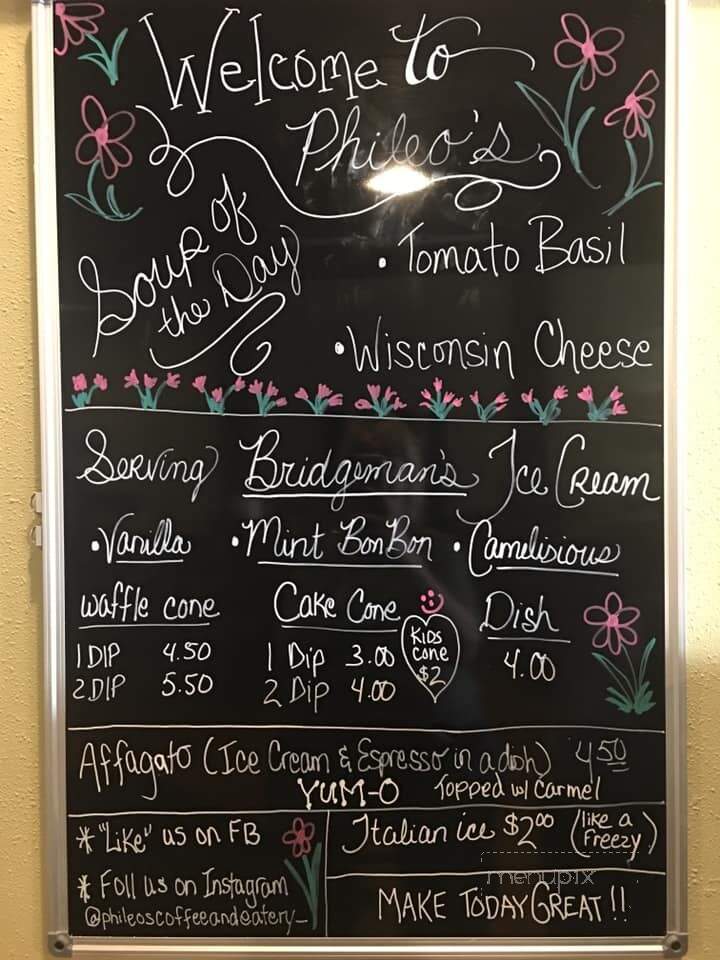 Welcome to
Phileo's
Soup of
the Day
• Tomato Basil
• Wisconsin Cheese
Serving Bridgeman's Ice Cream
• Vanilla • Mint BonBon • Camelisious
waffle cone
1 DIP 4.50
2 DIP 5.50
Cake Cone
1 Dip 3.00
2 Dip 4.00
KIDS
cone
$2
Dish
4.00
Affagato (Ice Cream & Espresso in a dish) 4.50
YUM-O Topped w/ Carmel
* "Like" us on FB
* Foll us on Instagram
@phileoscoffeeandeatery_
Italian ice $2.00 (like a
Freezy)
menupix
MAKE TODAY GREAT !!